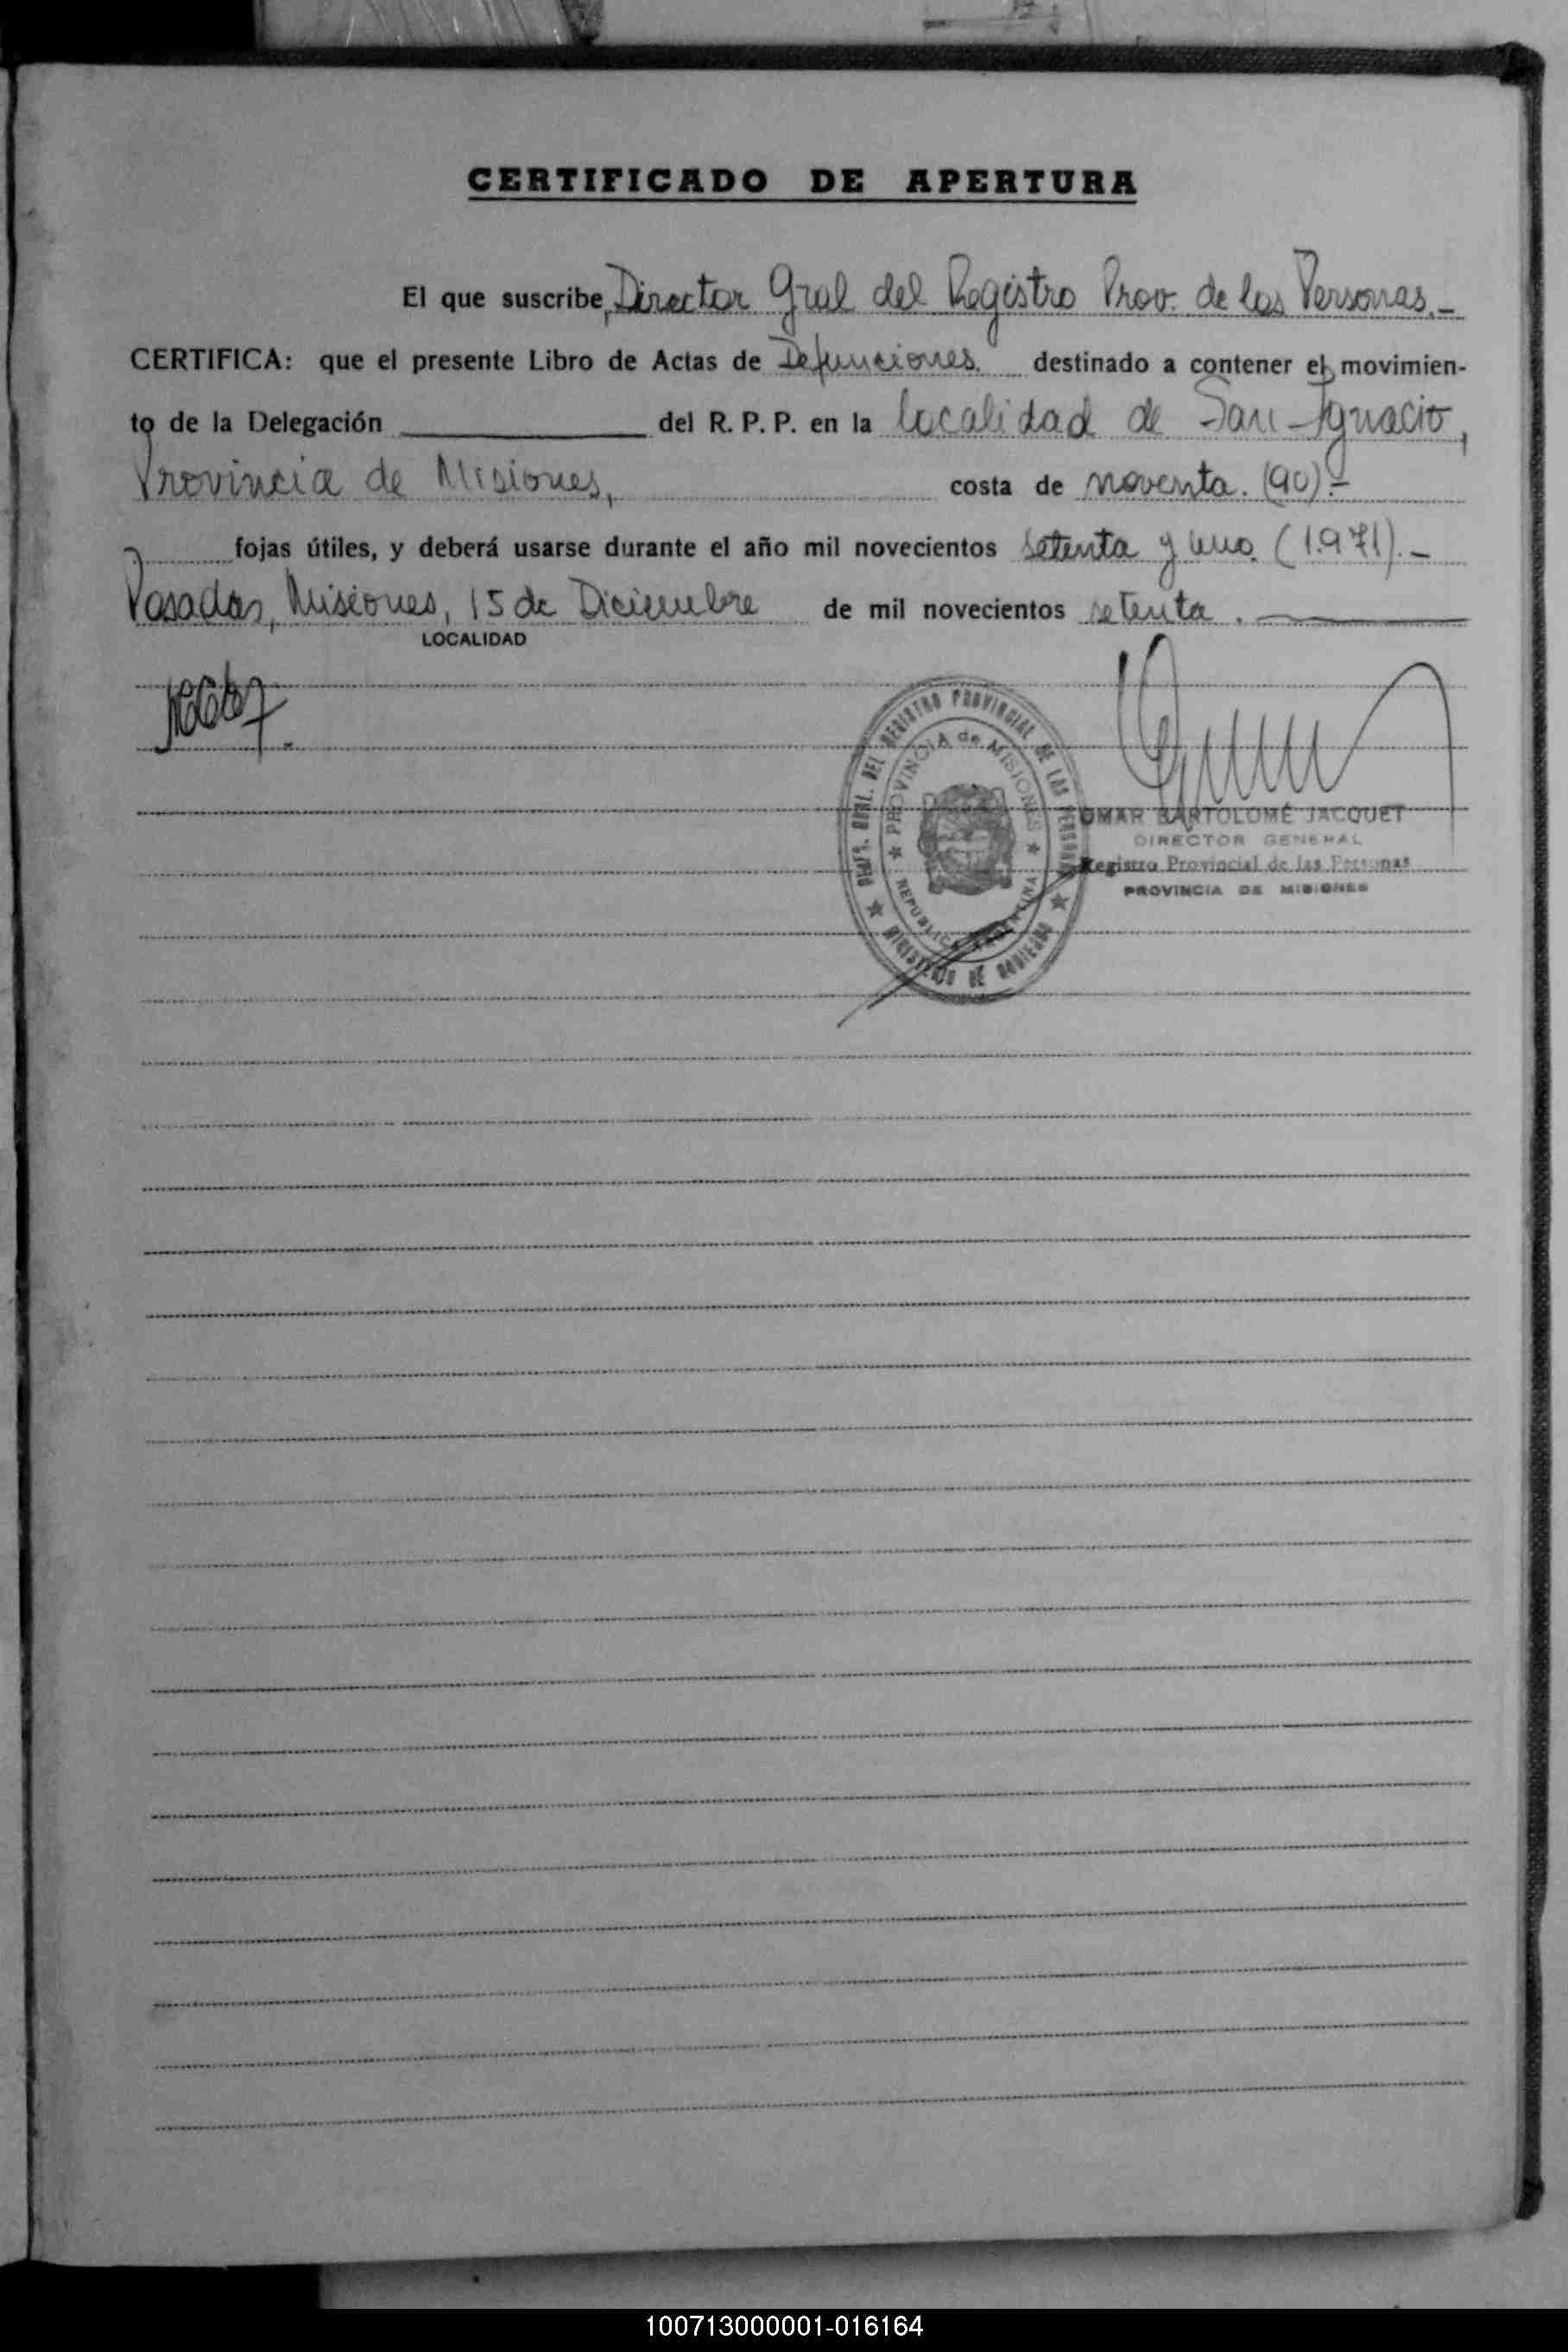 CERTIFICADO DE APERTURA
El que suscribe, Director Gral del Registro Prov. de las Personas.-
CERTIFICA: que el presente Libro de Actas de Defunciones. destinado a contener el movimien-
to de la Delegación del R. P. P. en la localidad de San Ignacio,
Provincia de Misiones, costa de noventa. (90).-
fojas útiles, y deberá usarse durante el año mil novecientos setenta y uno. (1.971).-
Posadas, Misiones, 15 de Diciembre de mil novecientos setenta.
LOCALIDAD
DEL REGISTRO PROVINCIAL DE LAS PERSONAS
PROVINCIA de MISIONES
REPUBLICA ARGENTINA
MINISTERIO DE GOBIERNO
OMAR BARTOLOMÉ JACQUET
DIRECTOR GENERAL
Registro Provincial de las Personas
PROVINCIA DE MISIONES
100713000001-016164